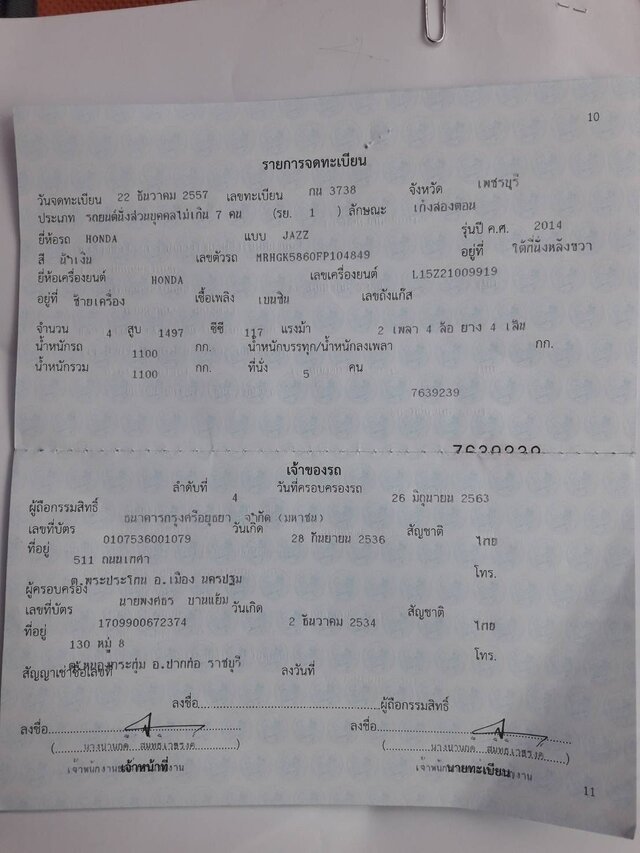 10
รายการจดทะเบียน
วันจดทะเบียน 22 ธันวาคม 2557 เลขทะเบียน กน 3738 จังหวัด เพชรบุรี
ประเภท รถยนต์นั่งส่วนบุคคลไม่เกิน 7 คน (รย. 1 ) ลักษณะ เก๋งสองตอน
ยี่ห้อรถ HONDA แบบ JAZZ รุ่นปี ค.ศ. 2014
สี น้ำเงิน เลขตัวรถ MRHGK5860FP104849 อยู่ที่ ใต้ที่นั่งหลังขวา
ยี่ห้อเครื่องยนต์ HONDA เลขเครื่องยนต์ L15Z21009919
อยู่ที่ ซ้ายเครื่อง เชื้อเพลิง เบนซิน เลขถังแก๊ส
จำนวน 4 สูบ 1497 ซีซี 117 แรงม้า 2 เพลา 4 ล้อ ยาง 4 เส้น
น้ำหนักรถ 1100 กก. น้ำหนักบรรทุก/น้ำหนักลงเพลา กก.
น้ำหนักรวม 1100 กก. ที่นั่ง 5 คน
7639239
7639239
เจ้าของรถ
ลำดับที่ 4 วันที่ครอบครองรถ 26 มิถุนายน 2563
ผู้ถือกรรมสิทธิ์ ธนาคารกรุงศรีอยุธยา จำกัด (มหาชน)
เลขที่บัตร 0107536001079 วันเกิด 28 กันยายน 2536 สัญชาติ ไทย
ที่อยู่ 511 ถนนเทศา
ต.พระประโทน อ.เมือง นครปฐม โทร.
ผู้ครอบครอง นายพงศธร บานแย้ม
เลขที่บัตร 1709900672374 วันเกิด 2 ธันวาคม 2534 สัญชาติ ไทย
ที่อยู่ 130 หมู่ 8
ต.หนองกระทุ่ม อ.ปากท่อ ราชบุรี โทร.
สัญญาเช่าซื้อเลขที่ ลงวันที่
ลงชื่อ ผู้ถือกรรมสิทธิ์
ลงชื่อ ลงชื่อ
เจ้าหน้าที่ นายทะเบียน
11